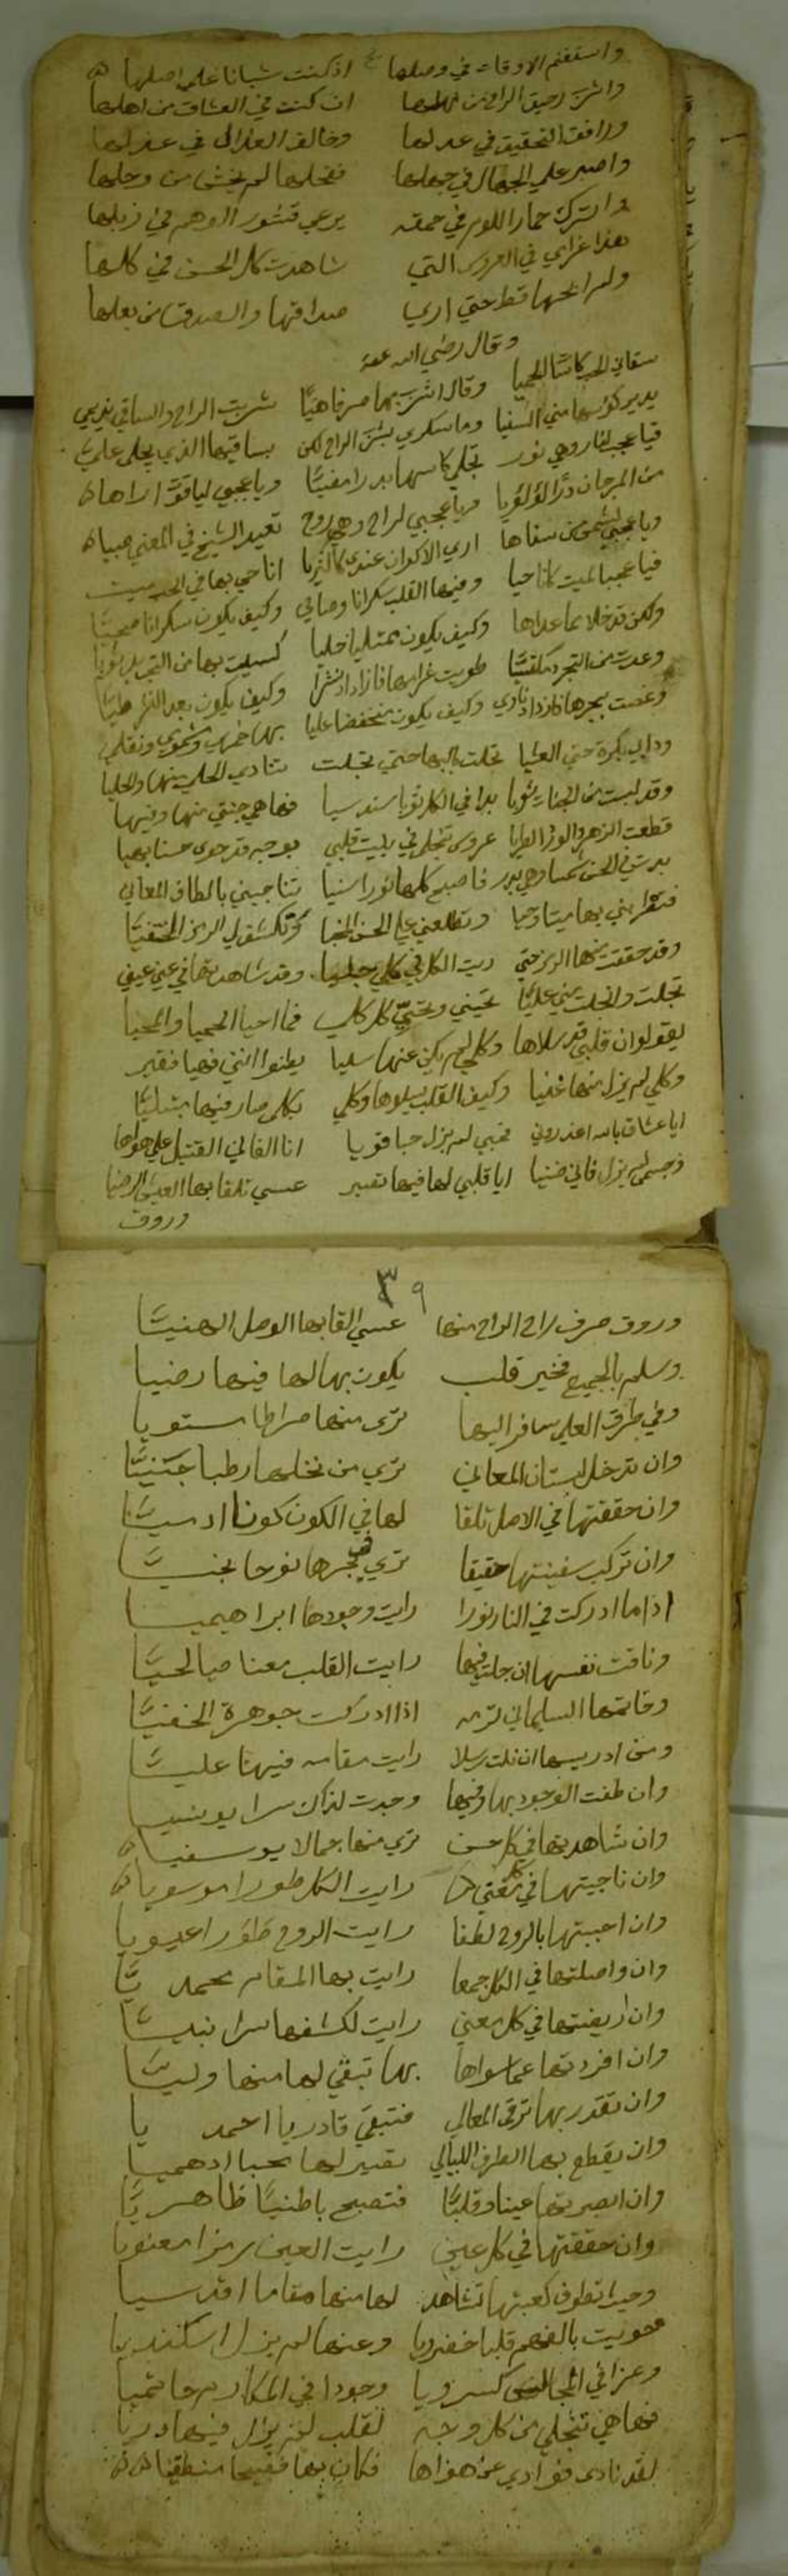 واستغنم الاوقات في وصلها اذ كنت شبانا على اصلها
واشرب رحيق الراح من ان كنت في العشاق من اهلها
ورافق التحقيق في عدلها وخالف العذال في عذلها
واصبر على الجهال في جهلها فنحلها لم يخش من وحلها
واترك حمار اللوم في حمقه يرعى قشور الوهم في زبلها
هذا غرامي في العروس التي شاهدت كل الحسن في كلها
ولم ابحها قط حتي اري صداقها والصدق من بعلها
وقال رضي الله عنه
سقاني الحب كاسات الحميا وقال اشرب بها صرفا هنيا شربت الراح والساقي نديمي
يدير كؤسها مني السفيا وما سكري بشرب الراح لكن بساقيها الذي يجلى عليا
فيا عجبي لنار وهي نور تجلي كاسها بدرا مضيا ويا عجبي لياقوت اراها
من المرجان درا لؤلؤيا ويا عجبي لراح وهي روح تعيد الشيخ في المعني صبيا
ويا عجبي لشمس من سناها اري الاكوان عندي كالثريا انا حي بها في الحب ميت
فيا عجبا لميت كان حيا وفيها القلب سكرانا وصاحي وكيف يكون سكرانا صحيا
ولكن قد خلا عما عداها وكيف يكون ممتليا خليا كسيت بها من التجريد ثوبا
وعدت من التجرد مكتسيا طويت غرامها فازداد نشرا وكيف يكون بعد النشر طيا
وغصت ببحرها فازداد ناري وكيف يكون منخفضا عليا بها خمري وشكوي ونقلي
ودابي بكرة حتي العشيا تجلت بالبها حتي تجلت تنادي الحلي منها والحليا
وقد لبست من الجنات ثوبا بدا في الكل ثوبا سندسيا فها هي جنتي منها وفيها
قطعت الزهر والورد الطريا عروس تنجلي في بيت قلبي بوجه قد حوى حسنا بهيا
بدت في الحسن شمسا وهي بدر فاصبح كلها نورا سنيا تناجيني بالطاف المعاني
فتقراني بها ميتا وحيا وتطلعني علي الحسن المخبا وتكشف لي الرمز المختفيا
وقد حققت منها الرمز حتي رايت الكل في كلي جليا وقد شاهدتها في عين عيني
تجلت وانجلت مني عليا تحيني وتحيي كل كلي فما احيا الحميا والمحيا
يقولوا ان قلبي قد سلاها وكلي لم يكن عنها سليا يظنوا انني فيها فقير
وكلي لم يزل منها غنيا وكيف القلب يسلوها وكلي بكلي صار فيها مبتليا
ايا عشاق بالله اعذروني فحبي لم يزل حبا قويا انا الفاني القتيل علي هواها
وجسمي لم يزل فاني ضنيا ايا قلبي لها فيها تصير عسي تلقا بها العيش الرضيا
وروق
٣٩
وروق صرف راح الراح منها عسي القا بها الوصل الهنيا
وسلم بالجميع فخير قلب يكون بها لها فيها رضيا
وفي طرق العلي سافر اليها ترى منها صراطا مستويا
وان تدخل لبستان المعاني تري من نخلها رطبا جنيا
وان حققتها في الاصل تلقا لها في الكون كونا ادميا
وان تركب سفينتها حقيقا تري في بحرها نوحا نجيا
اذا ما ادركت في النار نورا رايت وجودها ابراهيميا
وناقت نفسها ان جلت فيها رايت القلب معنا صالحيا
وخاتمها السليماني لزمه اذا ادركت جوهرة الخفيا
ومن ادريسها ان نلت رسلا رايت مقامه فيها عليا
وان طفت الوجود بها وفيها وجدت لذاك سرا يونسيا
وان شاهدتها في كل حسن تري منها جمالا يوسفيا
وان ناجيتها في كل رايت الكل طورا موسويا
وان احببتها بالروح لطفا رايت الروح طورا عيسويا
وان واصلتها في الكل جمعا رايت بها المقام محمديا
وان اريضتها في كل معني رايت لكشفها سرا نبيا
وان افردتها عما سواها بها تبقي لها منها وليا
وان تقدر بها ترقى المعالي فتبقي قادريا احمديا
وان يقطع بها الطرف الليالي تصير لها محبا ادهميا
وان ابصرتها عينا وقلبا فتصبح باطنيا ظاهريا
وان حققتها في كل عين رايت العين رمزا معنويا
وحيدا تطوف كعبتها تشاهد لها منها مقاما اقدسيا
حويت بالفهم قلبا خضرويا وعنها لم يزل اسكندريا
وعزا في المجالس كسرويا وجودا في المكارم حاتميا
فها هي تنجلي من كل وجه لقلب لم يزل فيها دريا
لقد نادى فؤادي عن هواها فكان بها فصيحا منطقيا